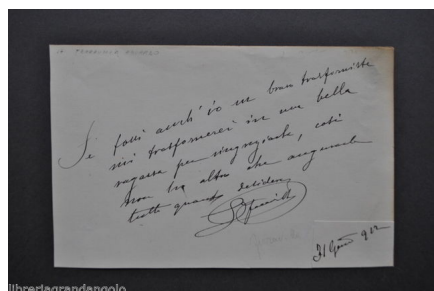 Se fossi anch'io un bravo trasformista
mi trasformerei in una bella
ragazza per ringraziarla, così
non ha altro che augurarle
tutto quanto desidera
31 Genº 912
libreriagrandangolo